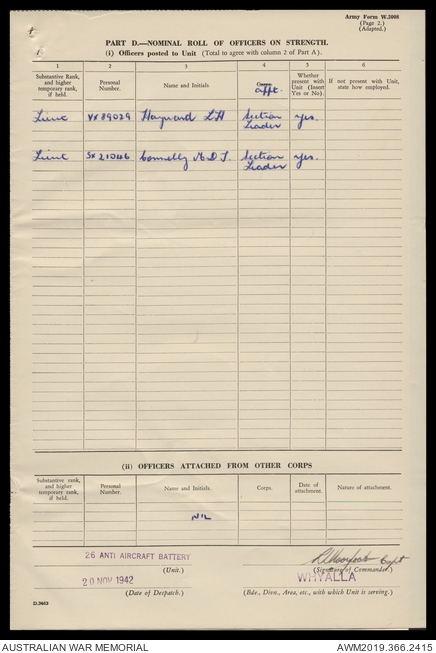 Army Form W.3008
(Page 2.)
(Adapted.)
PART D.—NOMINAL ROLL OF OFFICERS ON STRENGTH.
(i) Officers posted to Unit (Total to agree with column 2 of Part A).
1 2 3 4 5 6
Substantive Rank, and higher temporary rank, if held.
Personal Number.
Name and Initials
appt.
Whether present with Unit (Insert Yes or No).
If not present with Unit, state how employed.
Lieut VX89029 Hayward LH Section Leader yes.
Lieut SX21046 Connelly M.D.J. Section Leader yes.
(ii) OFFICERS ATTACHED FROM OTHER CORPS
Substantive rank, and higher temporary rank, if held.
Personal Number.
Name and Initials.
Corps.
Date of attachment.
Nature of attachment.
NIL
26 ANTI AIRCRAFT BATTERY
(Unit.)
Capt
(Signature of Commander.)
20 NOV 1942
(Date of Despatch.)
WHYALLA
(Bde., Divn., Area, etc., with which Unit is serving.)
D.3603
AUSTRALIAN WAR MEMORIAL
AWM2019.366.2415